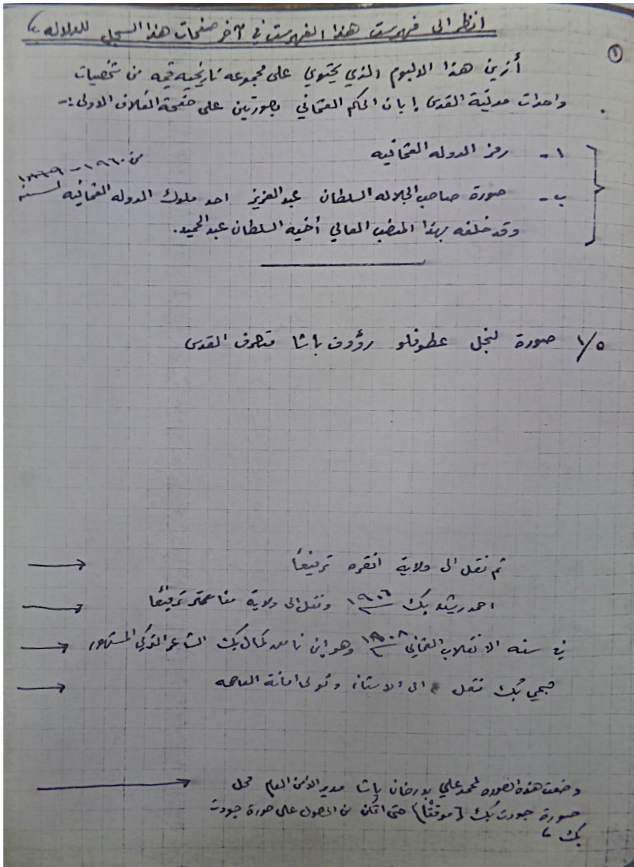 انظر الى فهرست هذا الفهرست في آخر صفحات هذا السجل للدلالة
١
أزين هذا الالبوم الذي يحتوي على مجموعه تاريخيه قيمه من شخصيات
واحداث مدينة القدس إبان الحكم العثماني بصورتين على صفحة الغلاف الاولى :-
١- رمز الدوله العثمانيه
ب- صورة صاحب الجلاله السلطان عبدالعزيز احد ملوك الدوله العثمانيه لسنة
من
وقد خلفه بهذا المنصب العالي أخيه السلطان عبدالحميد.
١/٥ صورة لنجل عطوفتلو رؤوف باشا متصرف القدس
ثم نقل الى ولاية انقره ترفيعاً
احمد رشيد بك ١٩٠٦ ونقل الى ولاية ترفيعاً
في سنه الانقلاب العثماني ١٩٠٨ وهو إبن نامق كمال بك الشاعر التركي المشهور
صبحي بك نقل الى الاستانه وتولى امانة العاصمه
وضعت هذه الصوره لمحمد علي بدرخان باشا مدير الامن العام محل
صورة جودت بك (موقتًا) حتى اتمكن من الحصول على صورة جودت
بك